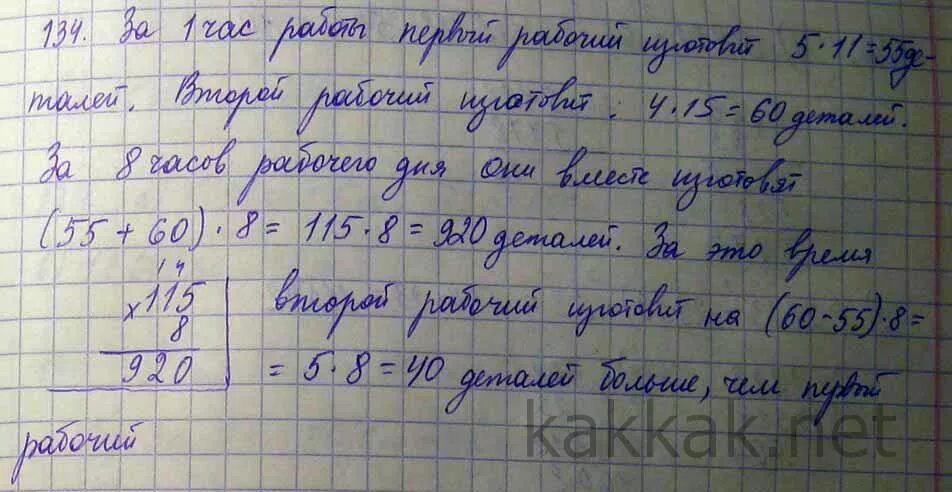 134. За 1 час работы первый рабочий изготовит 5·11=55де-
талей. Второй рабочий изготовит: 4·15=60 деталей.
За 8 часов рабочего дня они вместе изготовят
(55+60)·8=115·8=920 деталей. За это время
1 4
×115
8
920
второй рабочий изготовит на (60-55)·8=
=5·8=40 деталей больше, чем первый
рабочий
kakkak.net